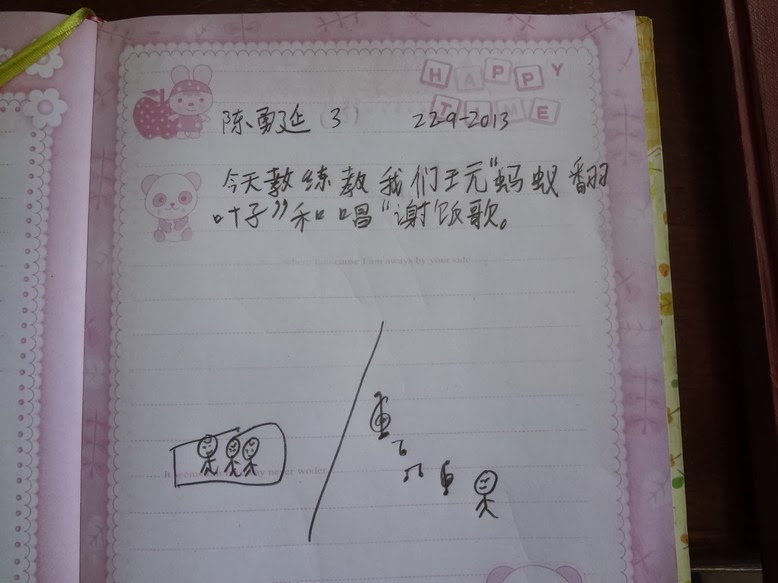 HAPPY
TIME
陈勇延 (3) 22-9-2013
今天教练教我们王元“蚂蚁翻
叶子”和唱“谢饭歌。
come I am aways by your side
ay never woder